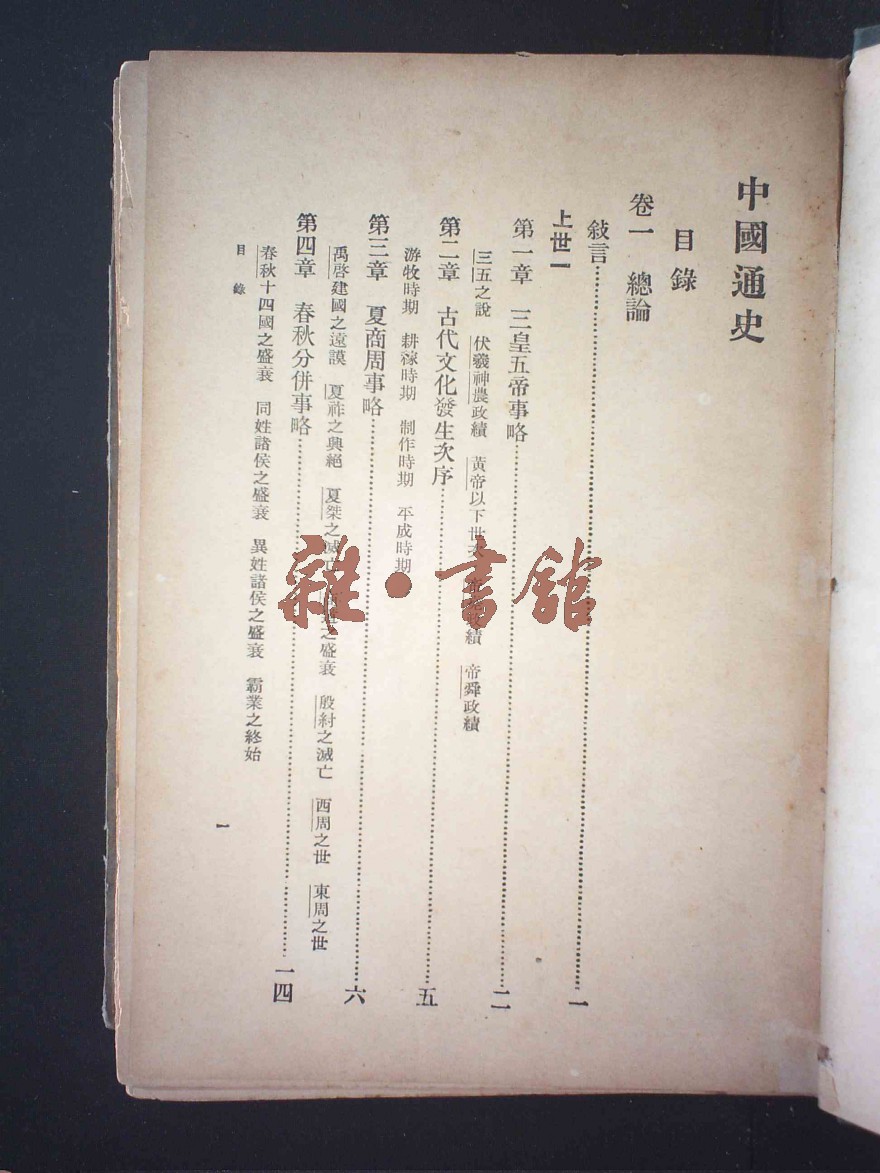 中國通史
目錄
卷一 總論
敍言……一
上世一
第一章 三皇五帝事略……二
三五之說 伏羲神農政績 黃帝以下世 政績 帝舜政績
第二章 古代文化發生次序……五
游牧時期 耕稼時期 制作時期 平成時期
第三章 夏商周事略……六
禹啓建國之遠謨 夏祚之興絕 夏桀之滅亡 之盛衰 殷紂之滅亡 西周之世 東周之世
第四章 春秋分併事略……一四
春秋十四國之盛衰 同姓諸侯之盛衰 異姓諸侯之盛衰 霸業之終始
目錄
一
雜·書館